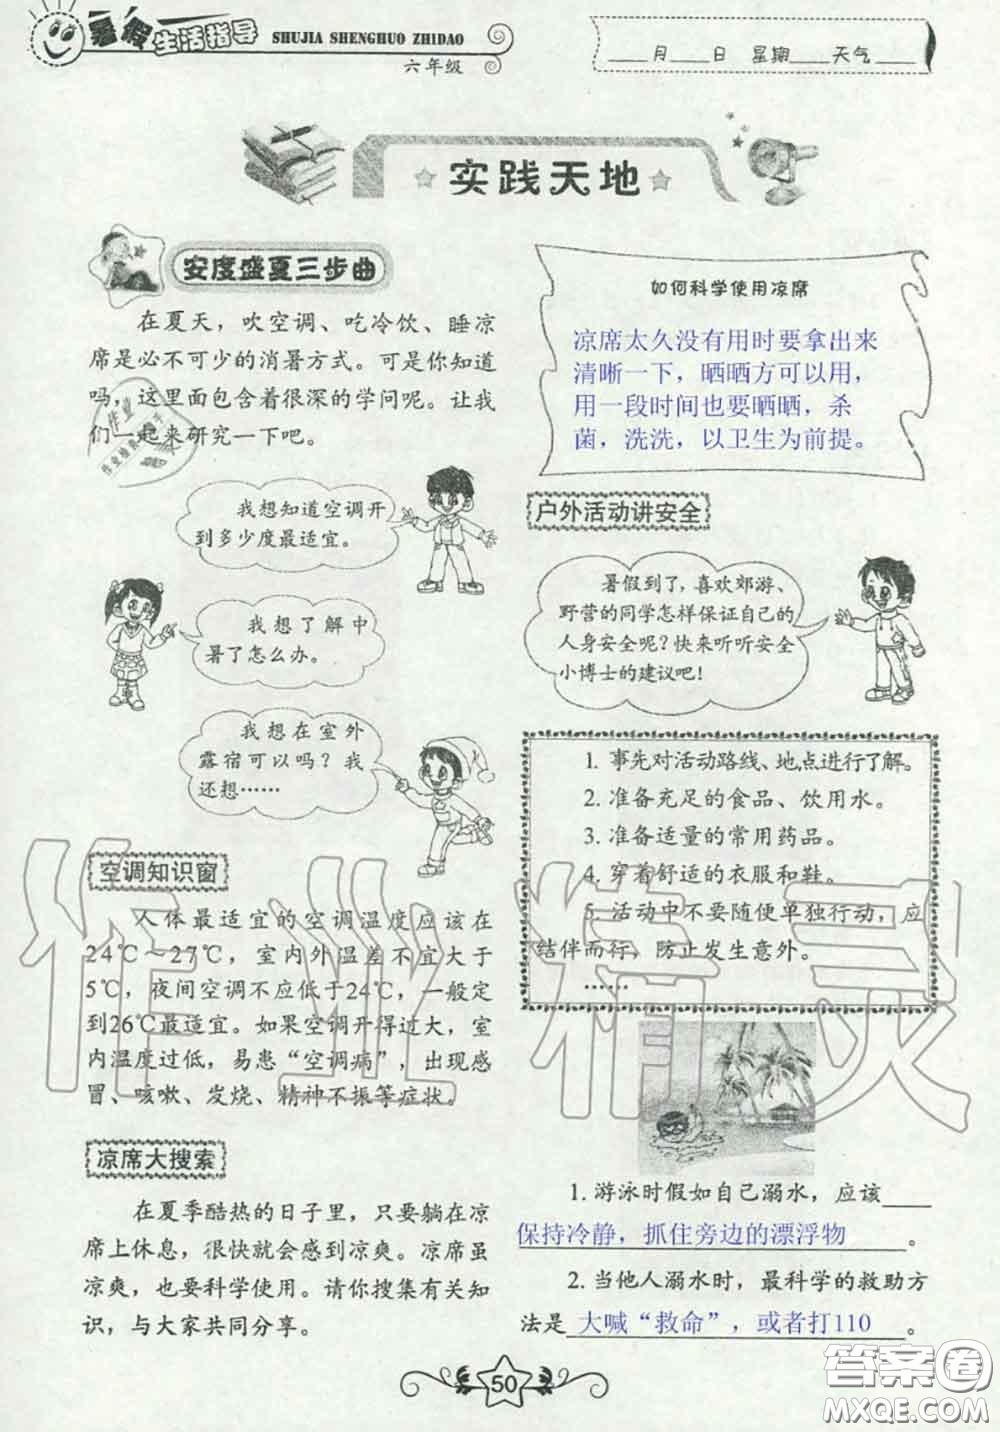 暑假生活指导 SHUJIA SHENGHUO ZHIDAO
六年级
____月____日 星期____天气____
实践天地
安度盛夏三步曲
在夏天，吹空调、吃冷饮、睡凉
席是必不可少的消暑方式。可是你知道
吗，这里面包含着很深的学问呢。让我
们一起来研究一下吧。
我想知道空调开
到多少度最适宜。
我想了解中
暑了怎么办。
我想在室外
露宿可以吗？我
还想……
空调知识窗
人体最适宜的空调温度应该在
24℃～27℃，室内外温差不宜大于
5℃，夜间空调不应低于24℃，一般定
到26℃最适宜。如果空调开得过大，室
内温度过低，易患“空调病”，出现感
冒、咳嗽、发烧、精神不振等症状。
凉席大搜索
在夏季酷热的日子里，只要躺在凉
席上休息，很快就会感到凉爽。凉席虽
凉爽，也要科学使用。请你搜集有关知
识，与大家共同分享。
如何科学使用凉席
凉席太久没有用时要拿出来
清晰一下，晒晒方可以用，
用一段时间也要晒晒，杀
菌，洗洗，以卫生为前提。
户外活动讲安全
暑假到了，喜欢郊游、
野营的同学怎样保证自己的
人身安全呢？快来听听安全
小博士的建议吧！
1. 事先对活动路线、地点进行了解。
2. 准备充足的食品、饮用水。
3. 准备适量的常用药品。
4. 穿着舒适的衣服和鞋。
5. 活动中不要随便单独行动，应
结伴而行，防止发生意外。
……
1. 游泳时假如自己溺水，应该____
保持冷静，抓住旁边的漂浮物。
2. 当他人溺水时，最科学的救助方
法是 大喊“救命”，或者打110 。
50
作业精灵
答案卷
MXQE.COM